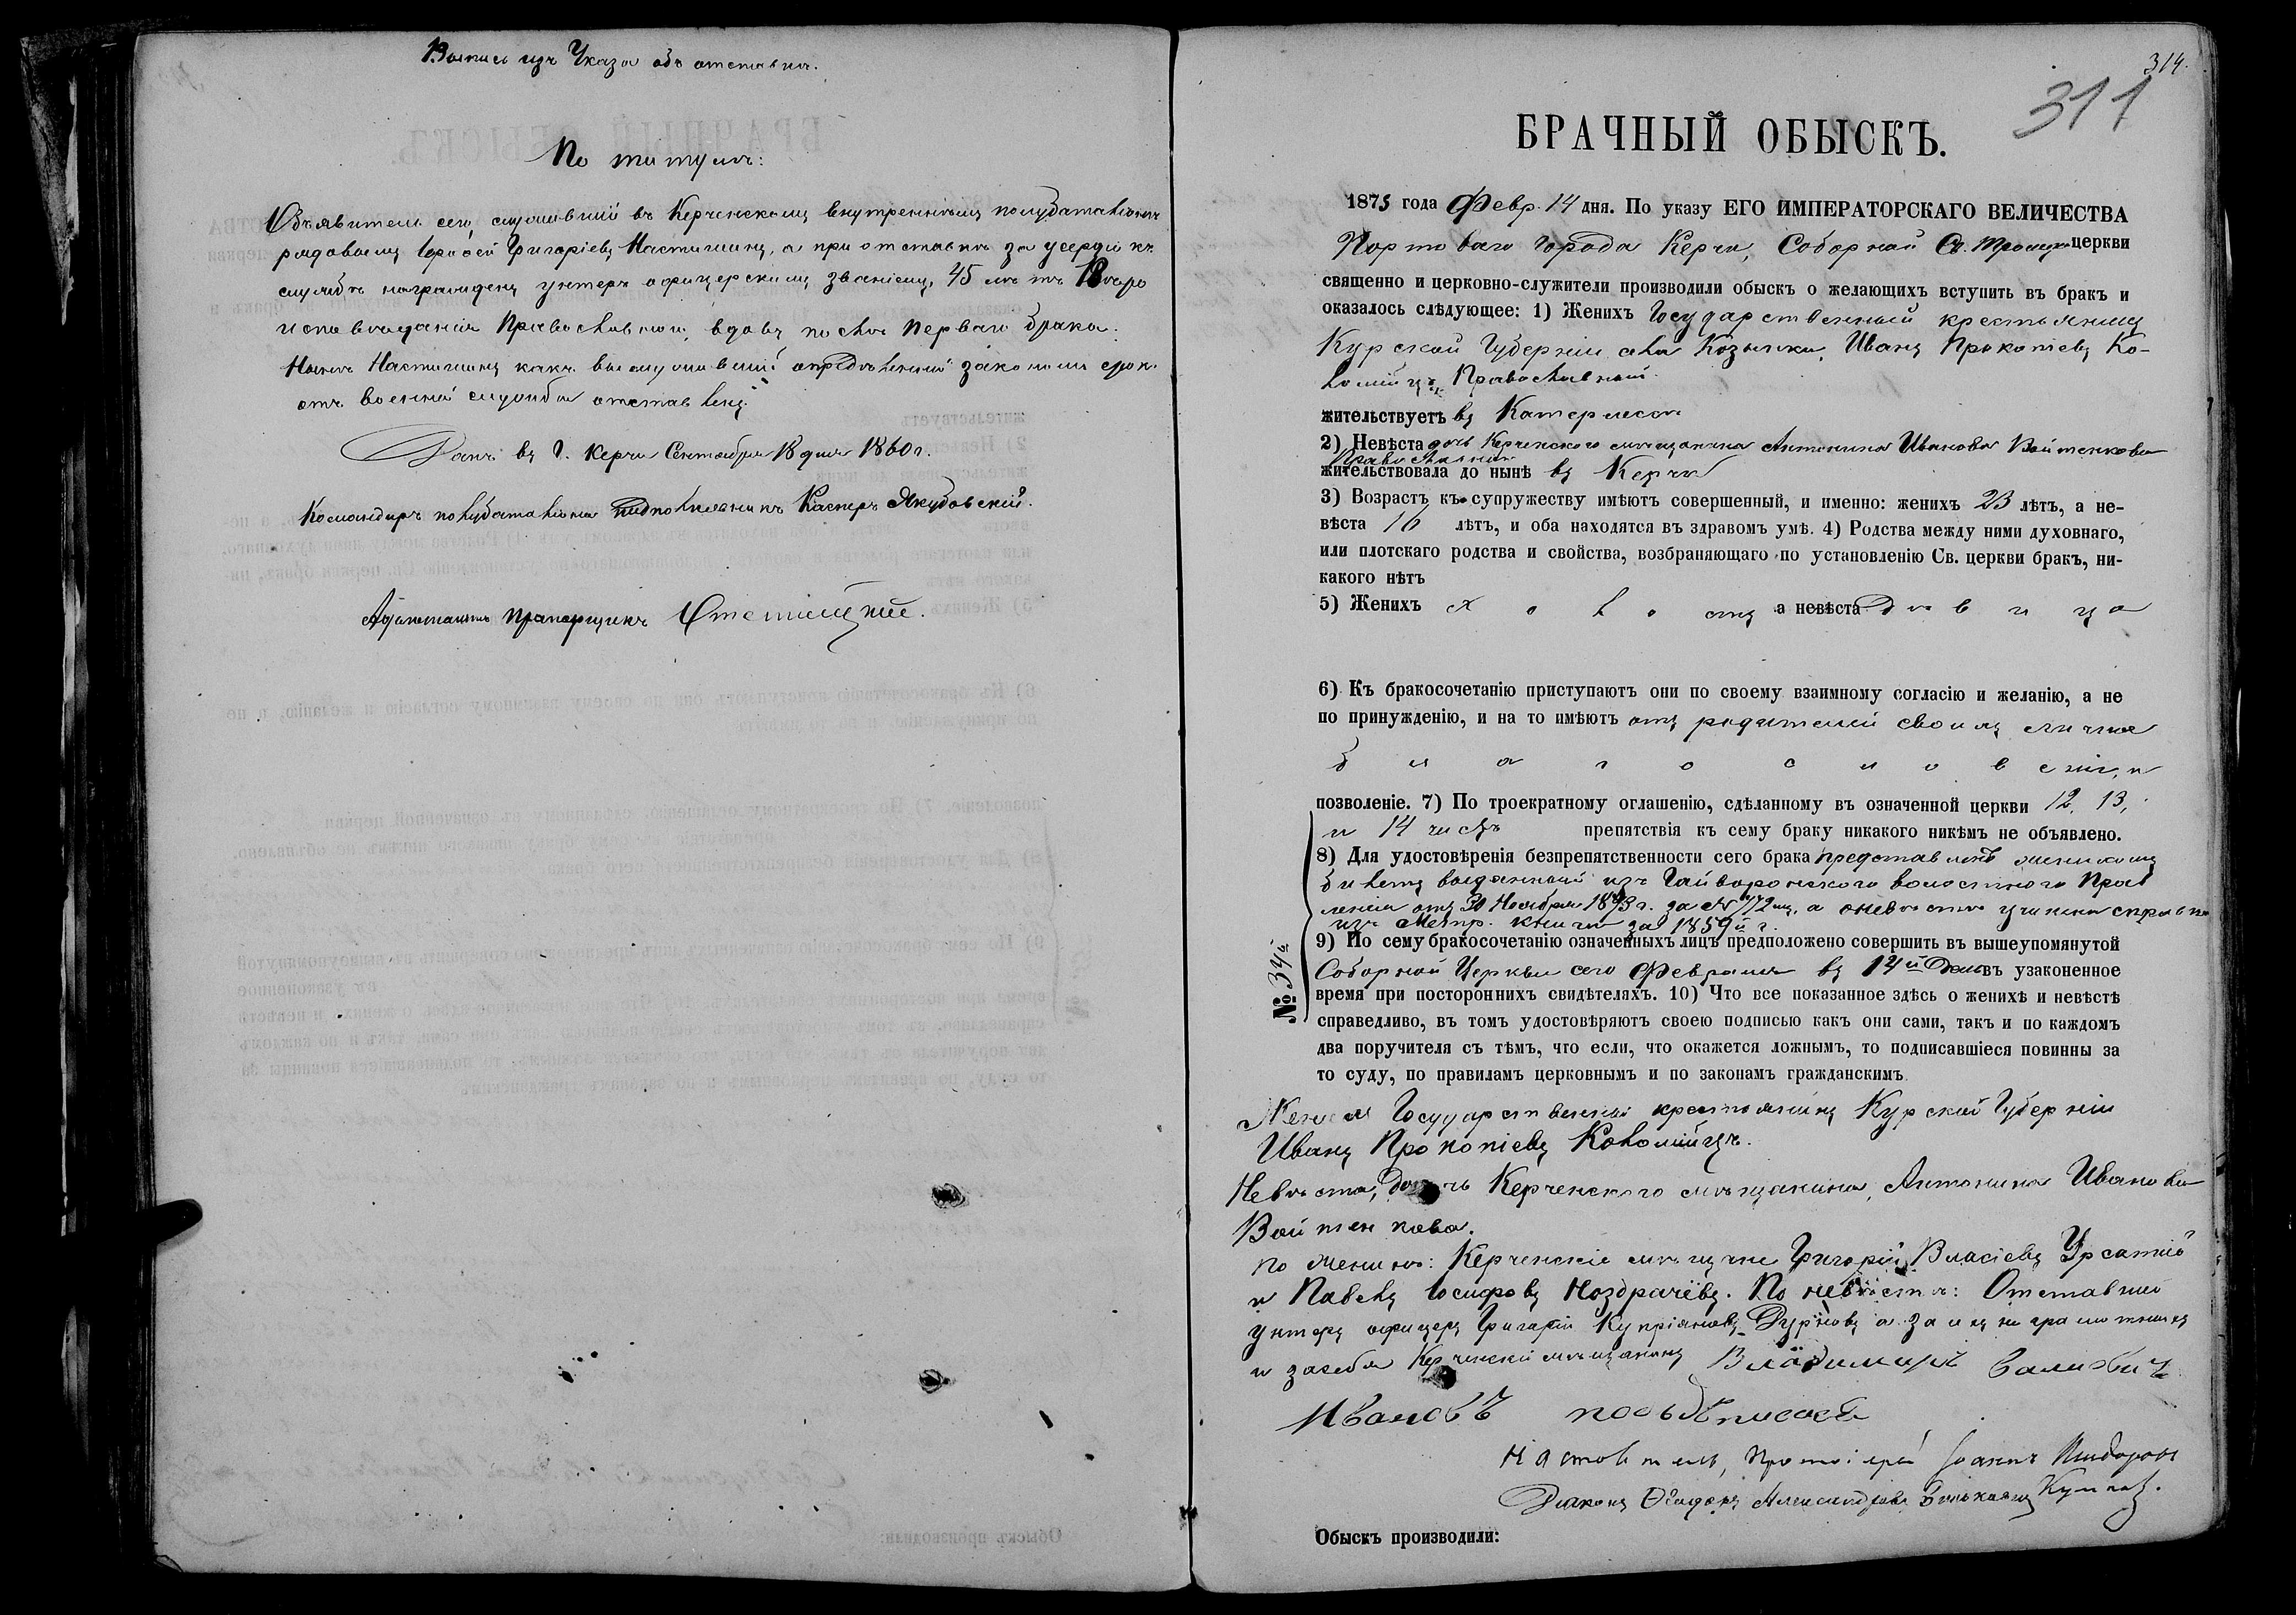 Выпись изъ Указа объ отставкѣ.
По титулѣ:
Объявитель сего, служившій въ Керченскомъ внутреннемъ полубаталіонѣ
рядовымъ Григоріевъ Настишинъ, а при отставкѣ за усердіе къ
службѣ награжденъ унтеръ офицерскимъ званіемъ, 45 лѣтъ
исповѣданія Православнаго, вдовъ послѣ перваго брака.
Нынѣ Настишинъ какъ выслужившій опредѣленный закономъ срокъ
отъ военной службы отставленъ.
Данъ въ г. Керчи Сентября 18 дня 1860 г.
Командиръ полубаталіона подполковникъ Касперъ Якубовскій.
Адъютантъ прапорщикъ
314.
311
БРАЧНЫЙ ОБЫСКЪ.
1875 года Февр. 14 дня. По указу ЕГО ИМПЕРАТОРСКАГО ВЕЛИЧЕСТВА
Портоваго города Керчи, Соборной Св. Троицкой церкви
священно и церковно-служители производили обыскъ о желающихъ вступить въ бракъ и
оказалось слѣдующее: 1) Женихъ Государственный крестьянинъ
Курской Губерніи села Козынки, Иванъ Прокопіевъ Ко-
ломійцъ, Православный.
жительствуетъ въ Катерлесѣ
2) Невѣста дочь Керченскаго мѣщанина Антонина Иванова Войтенкова
Православная
жительствовала до нынѣ въ Керчи
3) Возрастъ къ супружеству имѣютъ совершенный, и именно: женихъ 23 лѣтъ, а не-
вѣста 16 лѣтъ, и оба находятся въ здравомъ умѣ. 4) Родства между ними духовнаго,
или плотскаго родства и свойства, возбраняющаго по установленію Св. церкви бракъ, ни-
какого нѣтъ
5) Женихъ холостъ а невѣста дѣвица
6) Къ бракосочетанію приступаютъ они по своему взаимному согласію и желанію, а не
по принужденію, и на то имѣютъ отъ родителей своихъ личное
благословеніе, и
позволеніе. 7) По троекратному оглашенію, сдѣланному въ означенной церкви 12, 13,
и 14 числъ препятствія къ сему браку никакого никѣмъ не объявлено.
8) Для удостовѣренія безпрепятственности сего брака представленъ женихомъ
билетъ выданный изъ Гайворонскаго волостнаго Прав
ленія отъ 30 Ноября г. за № а о невѣстѣ учинена справка
изъ Метр. книги за 1859й г.
9) По сему бракосочетанію означенныхъ лицъ предположено совершить въ вышеупомянутой
Соборной Церкви сего Февраля въ 14й день въ узаконенное
время при постороннихъ свидѣтеляхъ. 10) Что все показанное здѣсь о женихѣ и невѣстѣ
справедливо, въ томъ удостовѣряютъ своею подписью какъ они сами, такъ и по каждомъ
два поручителя съ тѣмъ, что если, что окажется ложнымъ, то подписавшіеся повинны за
то суду, по правиламъ церковнымъ и по законамъ гражданскимъ.
№ 34й
Женихъ Государственный крестьянинъ Курской Губерніи
Иванъ Прокопіевъ Коломійцъ.
Невѣста, дочь Керченскаго мѣщанина, Антонина Иванова
Войтенкова.
по женихѣ: Керченскіе мѣщане Григорій Власіевъ Урсатій
и Павелъ Іосифовъ Ноздрачёвъ. По невѣстѣ: Отставной
унтеръ офицеръ Григорій Купріяновъ Дурновъ а за нихъ неграмотныхъ
и за себя Керченскій мѣщанинъ Владимиръ
Ивановъ
Настоятель, Протоіерей Іоаннъ
Діаконъ Ѳеодоръ Александровъ
Обыскъ производили: